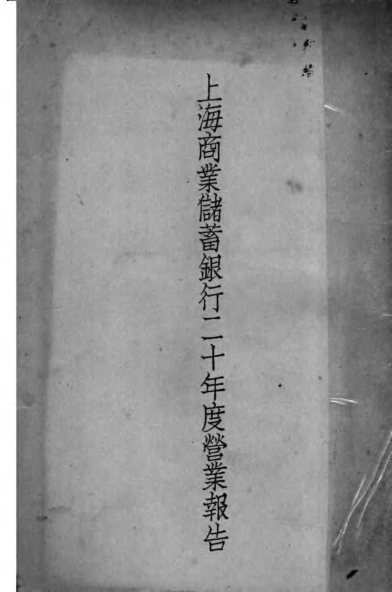 上海商業儲蓄銀行二十年度營業報告